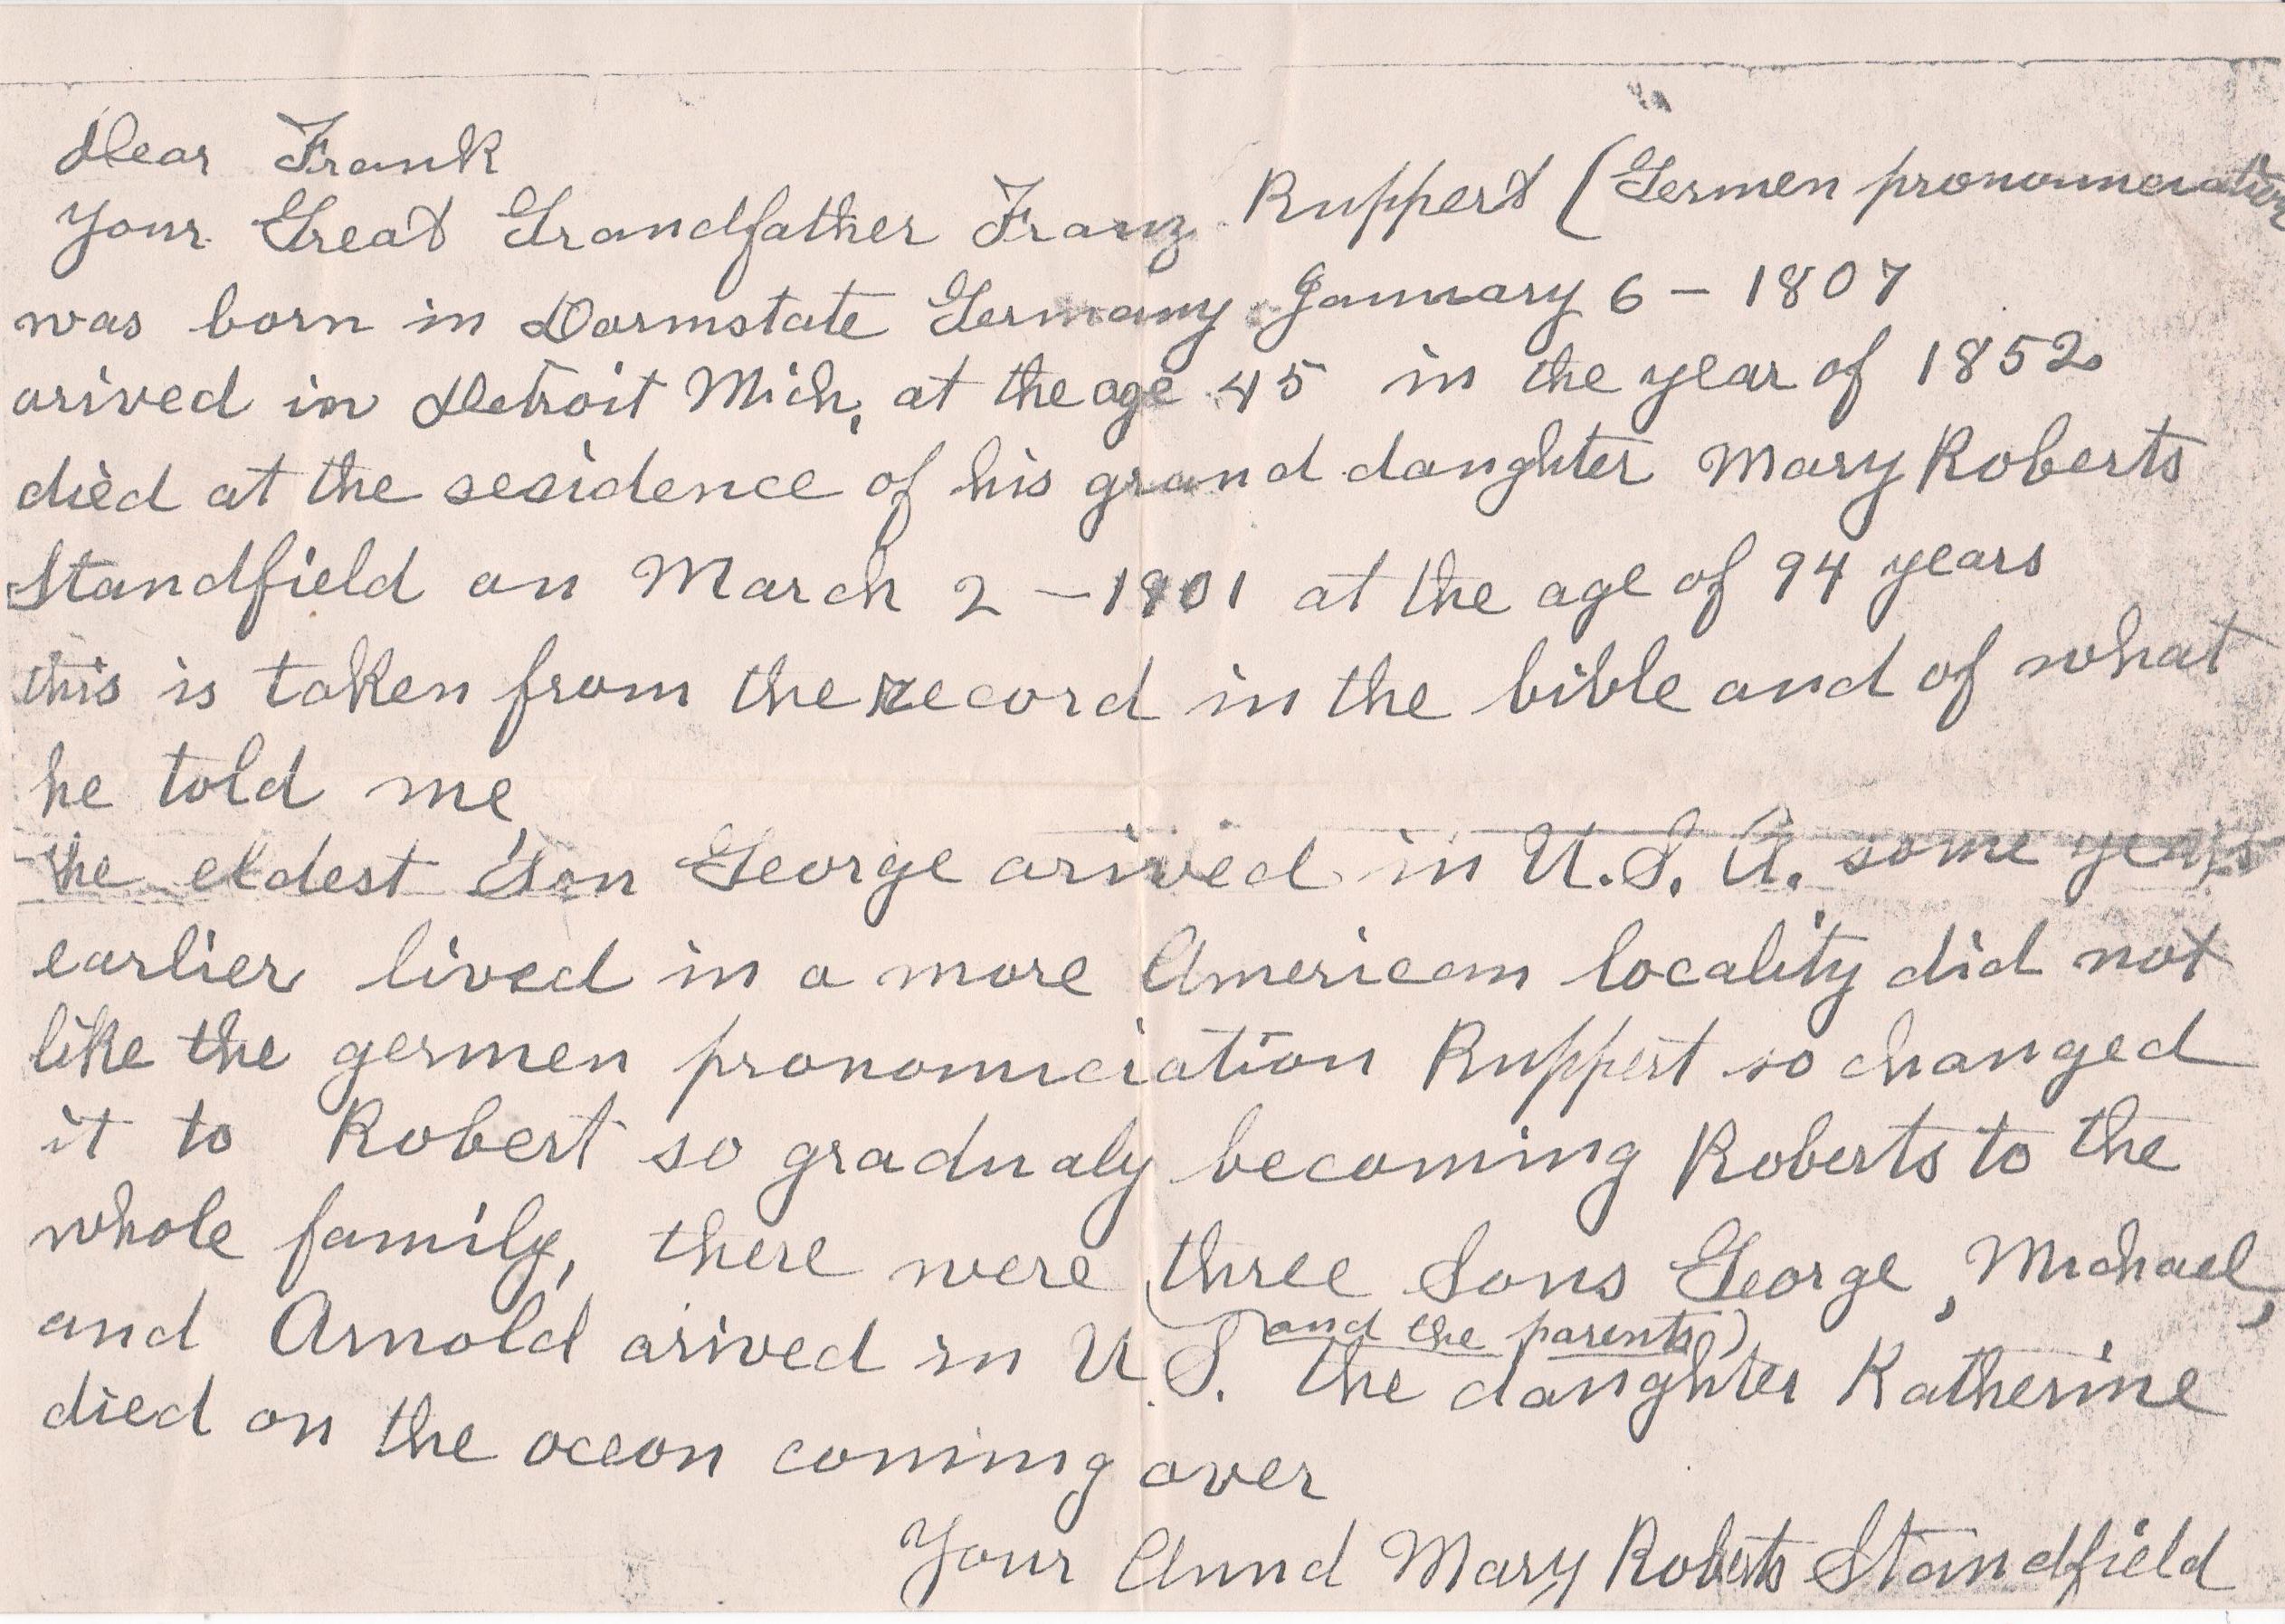 Dear Frank
Your Great Grandfather Franz Ruppert (Germen pronounciation
was born in Darmstate Germany January 6 - 1807
arived in Detroit Mich, at the age 45 in the year of 1852
died at the residence of his grand daughter Mary Roberts
Standfield on March 2 - 1901 at the age of 94 years
this is taken from the record in the bible and of what
he told me,
the eldest Son George arived in U.S.A. some years
earlier lived in a more American locality did not
like the germen pronounciation Ruppert so changed
it to Robert so gradualy becoming Roberts to the
whole family, there were three Sons George, Michael,
and Arnold arived in U.S. (and the parents) the daughter Katherine
died on the oceon coming over
Your Aund Mary Roberts Standfield